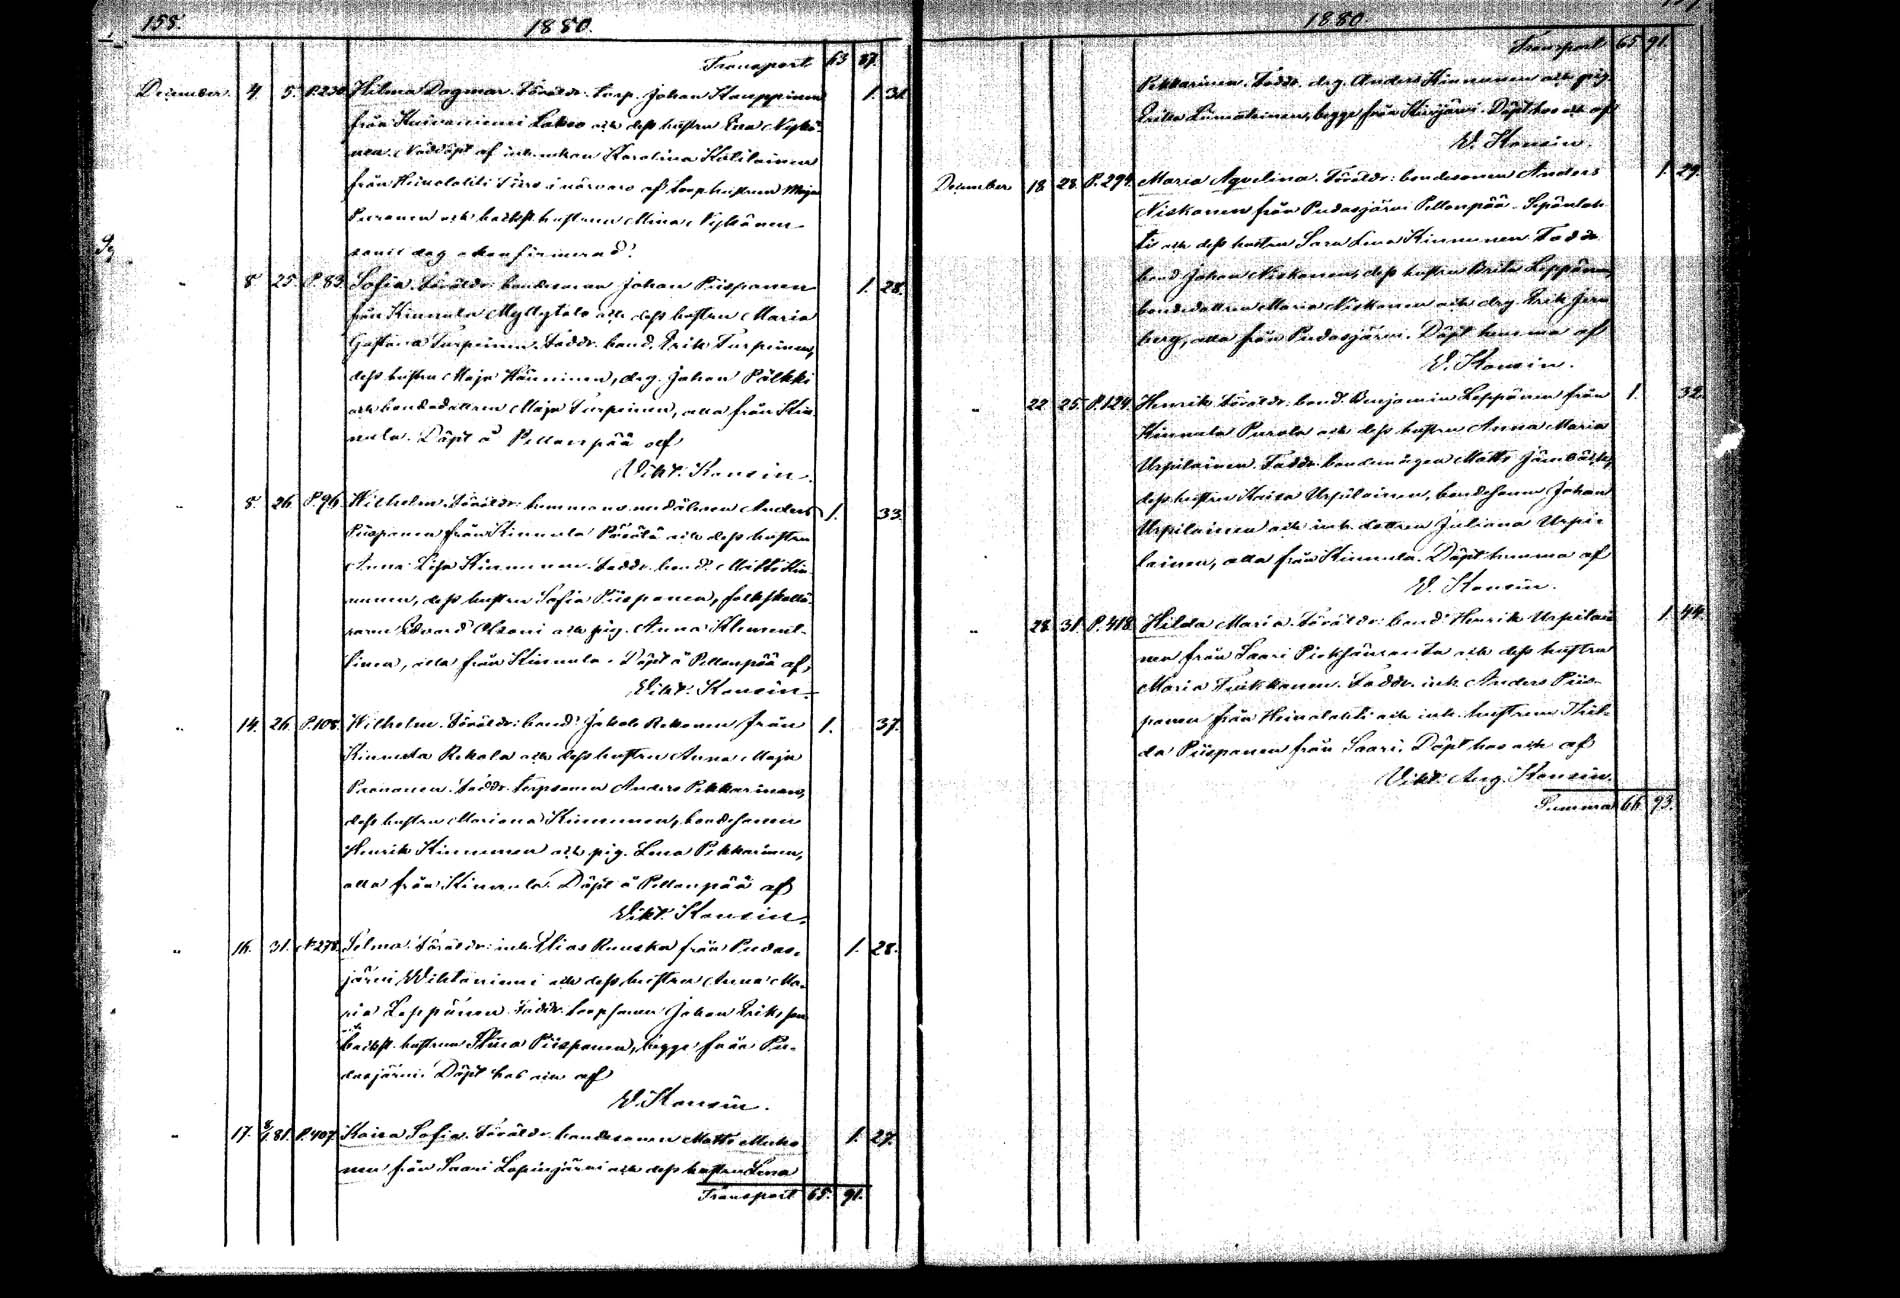 158.
1880.
Transport 63 87.
December. 4. 5. P.230. Hilma Dagmar. Föräldr. torp. Johan Kauppinen 1. 31.
från Kuivaniemi Lakso och dess hustru Eva Nykä-
nen. Nöddöpt af inh. enkan Karolina Kotilainen
från Heinolahti i närvaro af torp.hustrun Maja
Puranen och backst.hustrun Mina Nykänen
samt dag okonfirmerad.
" 8. 25. P.83. Sofia. Föräldr. bondesonen Johan Piispanen 1. 28.
från Kinnula Myllytalo och dess hustru Maria
Gustava Turpeinen. Faddr. bond. Erik Turpeinen,
dess hustru Maja Hänninen, drg. Johan Pölkki
och bondedottren Maja Turpeinen, alla från Kin-
nula. Döpt å Pellonpää af
Vikt. Konsin.
" 8. 26. P.96. Wilhelm. Föräldr. hemmans medålboen Anders 1. 33.
Piispanen från Kinnula Pärälä och dess hustru
Anna Lisa Kinnunen. Faddr. bond. Matti Kin-
nunen, dess hustru Sofia Piispanen, folkskollä-
raren Edvard Alroni och pig. Anna Klement-
Simen, alla från Kinnula. Döpt å Pellonpää af
Vikt. Konsin.
" 14. 26. P.108. Wilhelm. Föräldr. bond. Jakob Rekonen från 1. 37.
Kinnula Rekola och dess hustru Anna Maja
Paananen. Faddr. torpsonen Anders Pekkarinen,
dess hustru Mariana Kinnunen, bondesonen
Henrik Kinnunen och pig. Lena Pekkarinen,
alla från Kinnula. Döpt å Pellonpää af
Vikt. Konsin.
" 16. 31. P.278. Selma. Föräldr. inh. Elias Ruuska från Pudas- 1. 28.
järvi Wihtaniemi och dess hustru Anna Ma-
ria Leppänen. Faddr. torpsonen Johan Eriksson
och
backst. hustrun Stina Piispanen, begge från Pu-
dasjärvi. Döpt hos och af
V. Konsin.
" 17. 2/1 81. P.407. Kaisa Sofia. Föräldr. bondesonen Matts Muho- 1. 27.
nen från Saari Lapinjärvi och dess hustru Lena
Transport 65. 91.
1880
Transport 65 91.
Pekkarinen. Faddr. drg. Anders Kinnunen och pig.
Erika Lumiainen, begge från Kivijärvi. Döpt hos och af
V. Konsin.
December 18. 28. P.294. Maria Aqvelina. Föräldr. bondesonen Anders 1. 29.
Niskanen från Pudasjärvi Pellonpää - Sepänlah-
ti och dess hustru Sara Lena Kinnunen. Faddr.
bond. Johan Niskanen, dess hustru Brita Leppänen,
bondedottren Maria Niskanen och drg. Erik Jern-
berg, alla från Pudasjärvi. Döpt hemma af
V. Konsin.
" 22. 25. P.124. Henrik. Föräldr. bond. Benjamin Leppänen från 1. 32.
Kinnula Purola och dess hustru Anna Maria
Urpilainen. Faddr. bondemågen Matts Jämbäck,
dess hustru Kaisa Urpilainen, bondesonen Johan
Urpilainen och inh. dottren Juliana Urpi-
lainen, alla från Kinnula. Döpt hemma af
V. Konsin.
" 28. 31. P.418. Hilda Maria. Föräldr. bond. Henrik Urpilai- 1. 44.
nen från Saari Pirkhänranta och dess hustru
Maria Turkkanen. Faddr. inh. Anders Piis-
panen från Heinolahti och inh. hustrun Thil-
da Piispanen från Saari. Döpt hos och af
Vikt. Aug. Konsin.
Summa 66. 93.